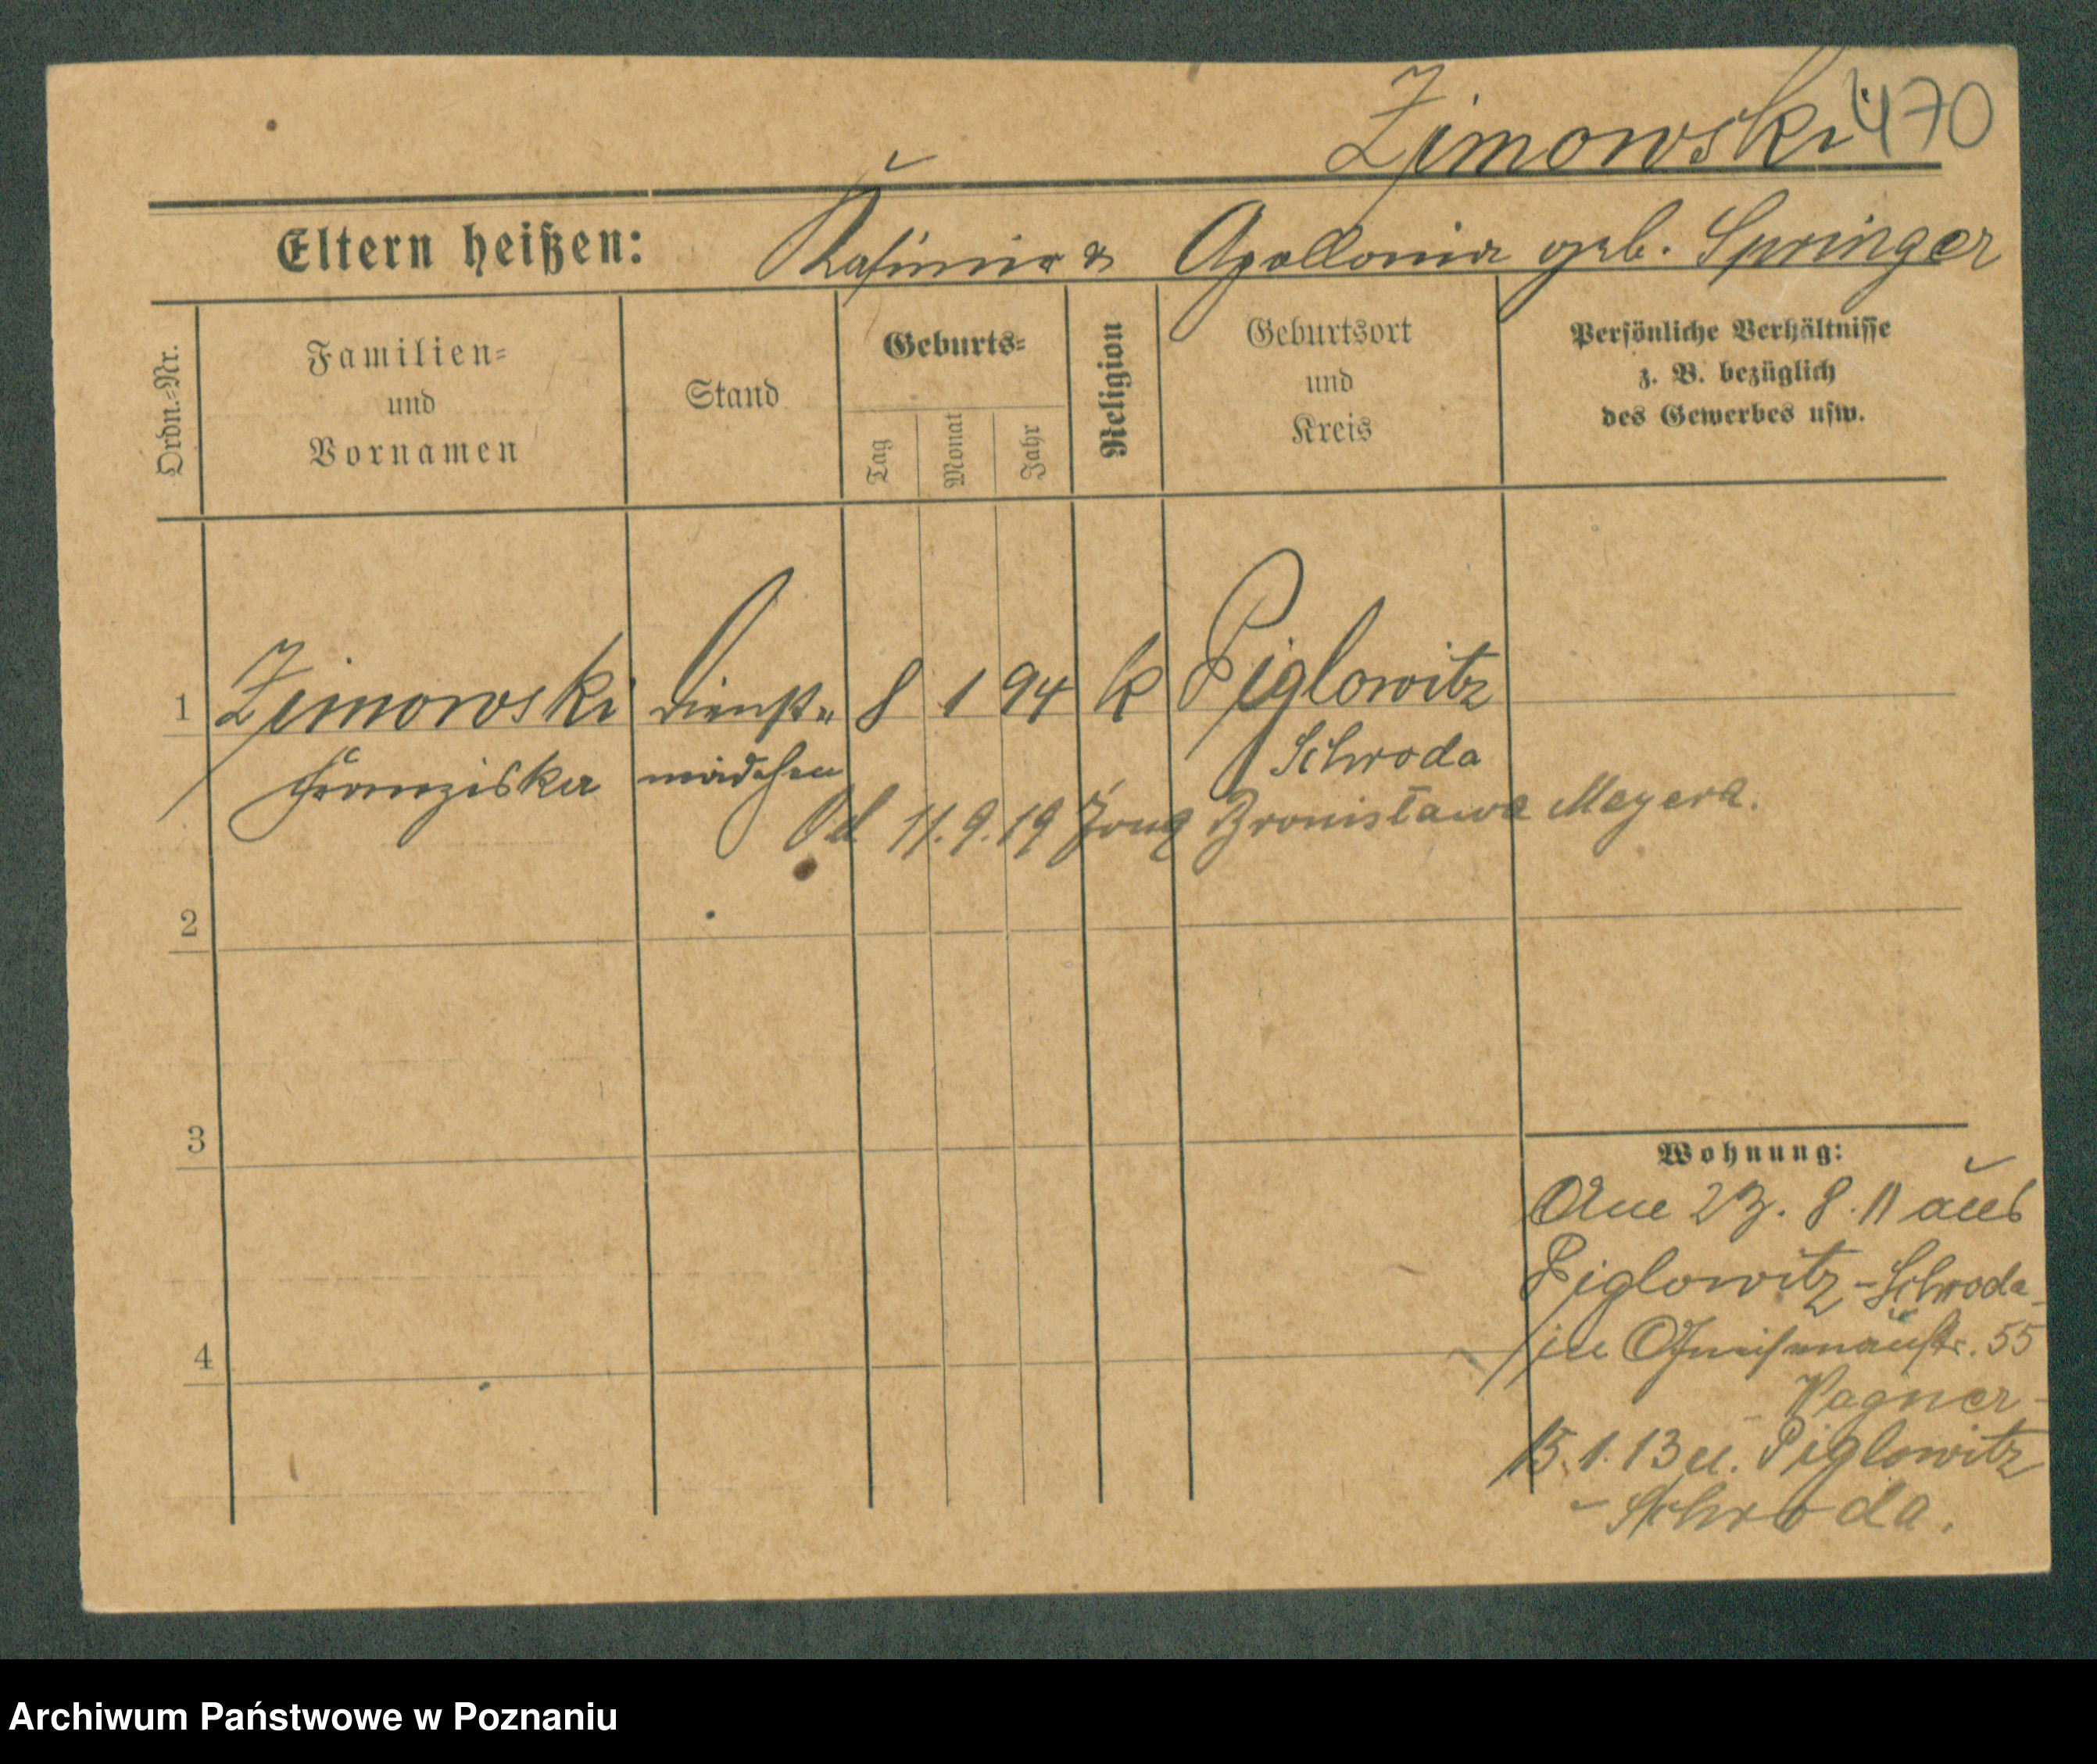 Zimowski 470
Eltern heißen: Kasimir & Apollonia geb. Springer
Ordn.-Nr.
Familien-
und
Vornamen
Stand
Geburts-
Tag
Monat
Jahr
Religion
Geburtsort
und
Kreis
Persönliche Verhältnisse
z. B. bezüglich
des Gewerbes usw.
1 Zimowski Dienst- 8 1 94 k Piglowitz
Franziska mädchen Schroda
Od 11.9.19 żoną Bronisława Meyera.
2
3
4
Wohnung:
Am 23. 8. 11 aus
Piglowitz - Schroda
in Gneisenaustr. 55
Wagner
15.1.13 n. Piglowitz
- Schroda.
Archiwum Państwowe w Poznaniu